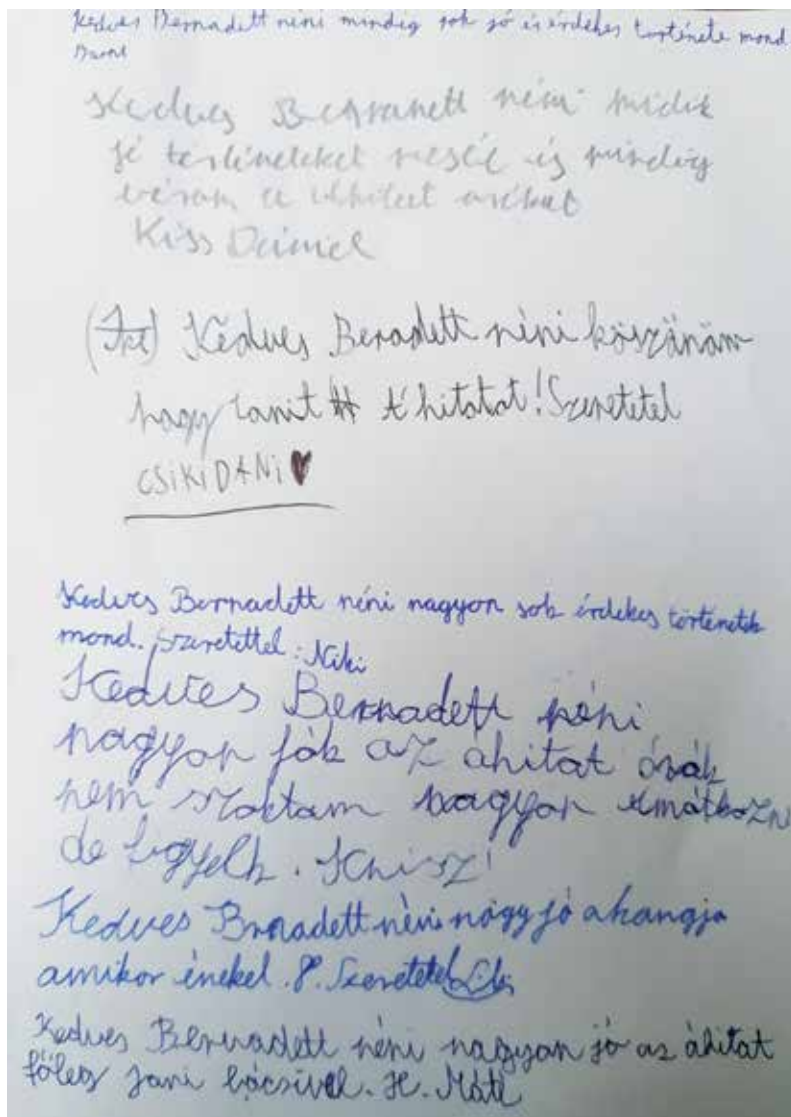 Kedves Bernadett néni mindig sok jó és érdekes története mond
Kedves néni
jó történeteket mesél és mindig
várom a
Kiss Dániel
Kedves Beradett néni köszönöm
hogy tanit Áhitatat! Szeretetel
CSIKI DANI ♥
Kedves Bernadett néni nagyon sok érdekes történetek
mond. Szeretettel: Niki
Kedves Bernadett néni
nagyon jók az áhitat órák
nem szoktam nagyon imátkozni
de figyelk.
Kedves Brnadett néni nágy jó ahangja
amikor énekel. Szeretetel
Kedves Bernadett néni nagyan jó az áhitat
főleg Jani bácsivel. H. Máté